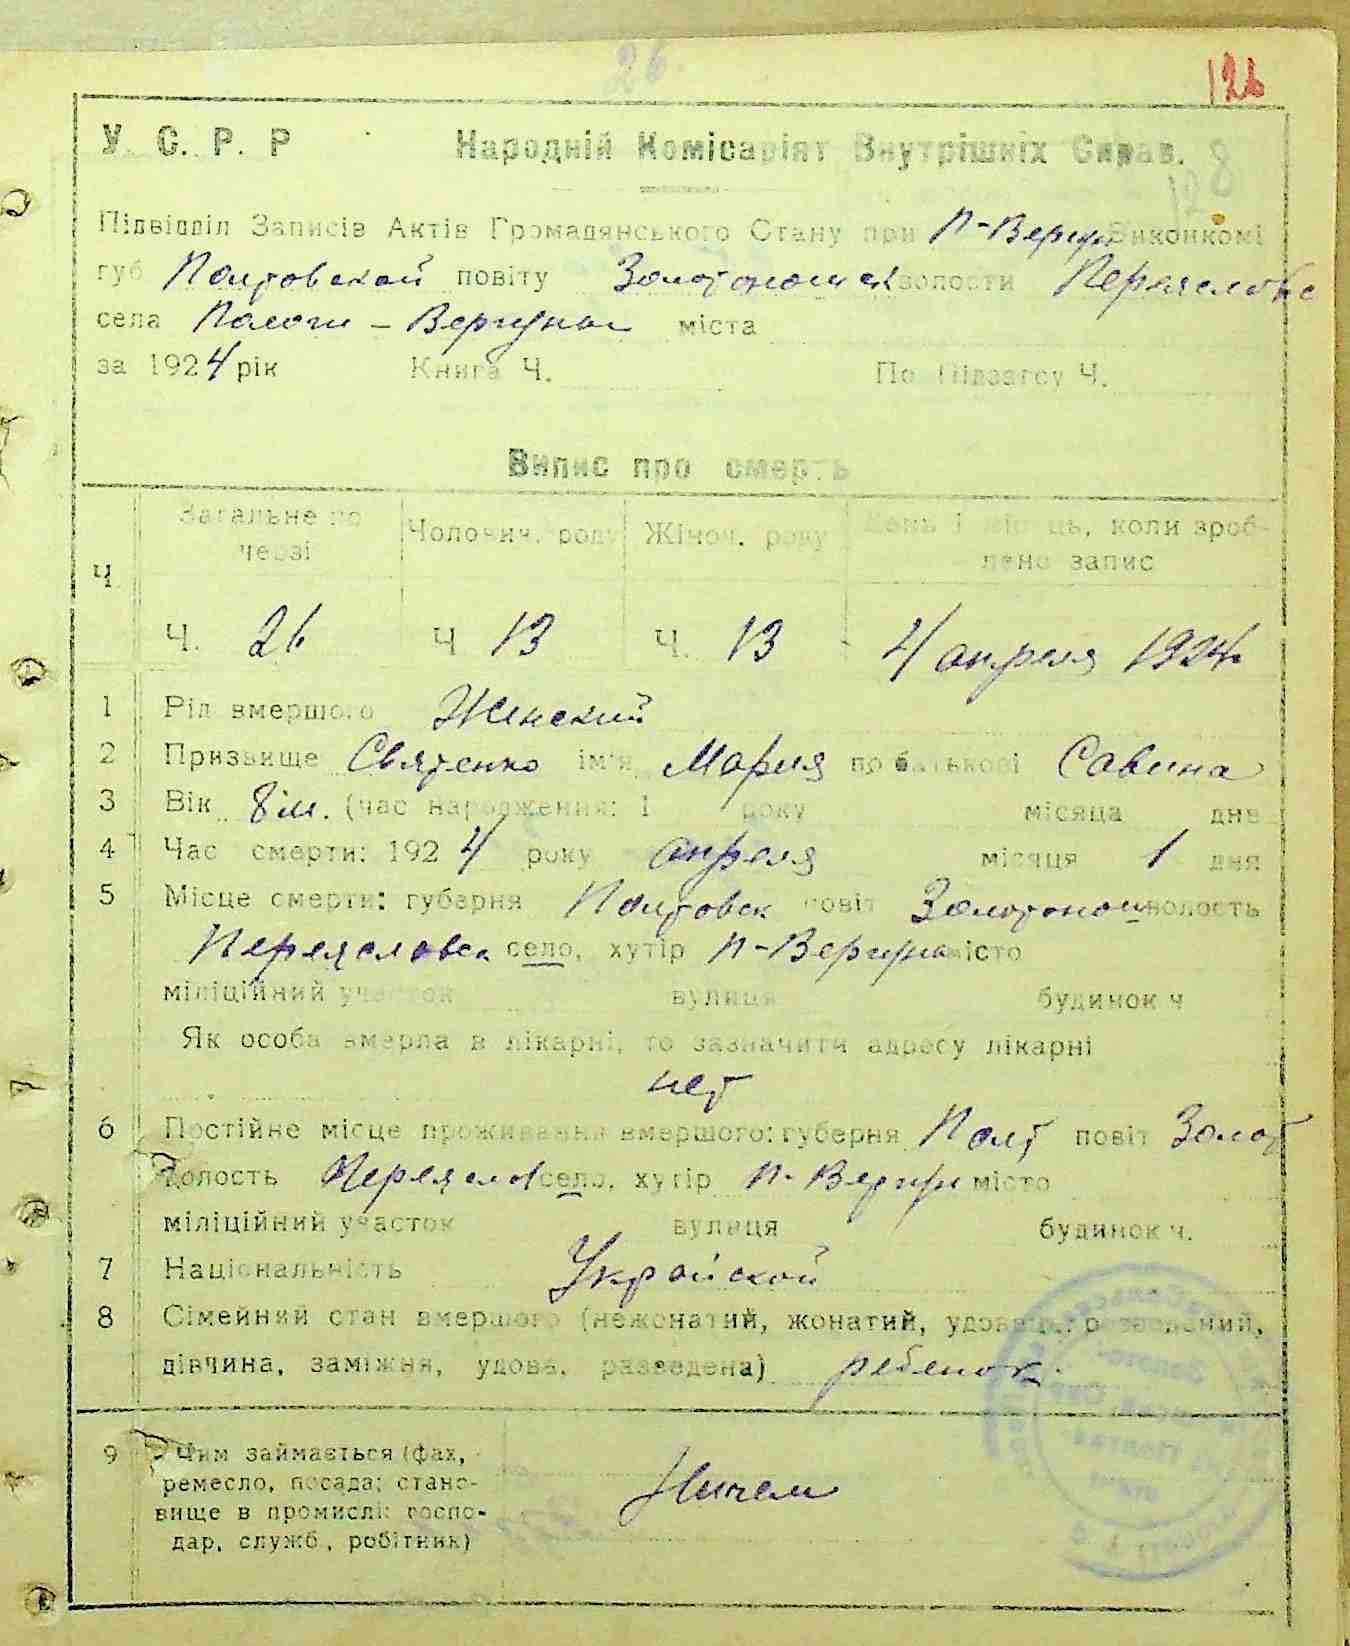 26
126
У. С. Р. Р Народній Комісаріят Внутрішніх Справ.
128
Підвідділ Записів Актів Громадянського Стану при П-Вергун Виконкомі
губ Полтовской повіту Золотоношск волости Переяславс
села Пологи - Вергуны міста
за 1924 рік Книга Ч. По Підзагсу Ч.
Випис про смерть
Ч Загальне по черзі Чоловіч. роду Жіноч. роду День і місяць, коли зроб-
лено запис
Ч. 26 Ч 13 Ч. 13 4 апреля 1924
1 Рід вмершого Женский
2 Призвище Святенко ім'я Мария по батькові Савина
3 Вік 8 м. (час народження: 1 року місяца дня
4 Час смерти: 1924 року апреля місяця 1 дня
5 Місце смерти: губерня Полтовск повіт Золотонош волость
Переяславск село, хутір П-Вергуны місто
міліційний участок вулиця будинок ч
Як особа вмерла в лікарні, то зазначити адресу лікарні
нет
6 Постійне місце проживання вмершого: губерня Полт повіт Золот
волость Переясл село, хутір П-Вергун місто
міліційний участок вулиця будинок ч.
7 Національність Украйской
8 Сімейний стан вмершого (нежонатий, жонатий, удовець, розведений,
дівчина, заміжня, удова, разведена) ребенок.
9 Чим займається (фах,
ремесло, посада; стано-
вище в промислі: госпо-
дар, служб., робітник)
Ничем